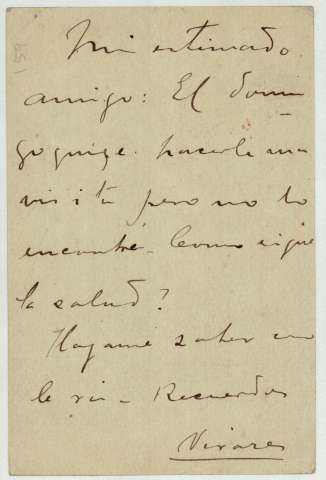 Mi estimado
amigo: El domin
go quize hacerle una
visita pero no lo
encontré. Como sigue
la salud?
Hagame saber
Recuerdos
Vivares
159